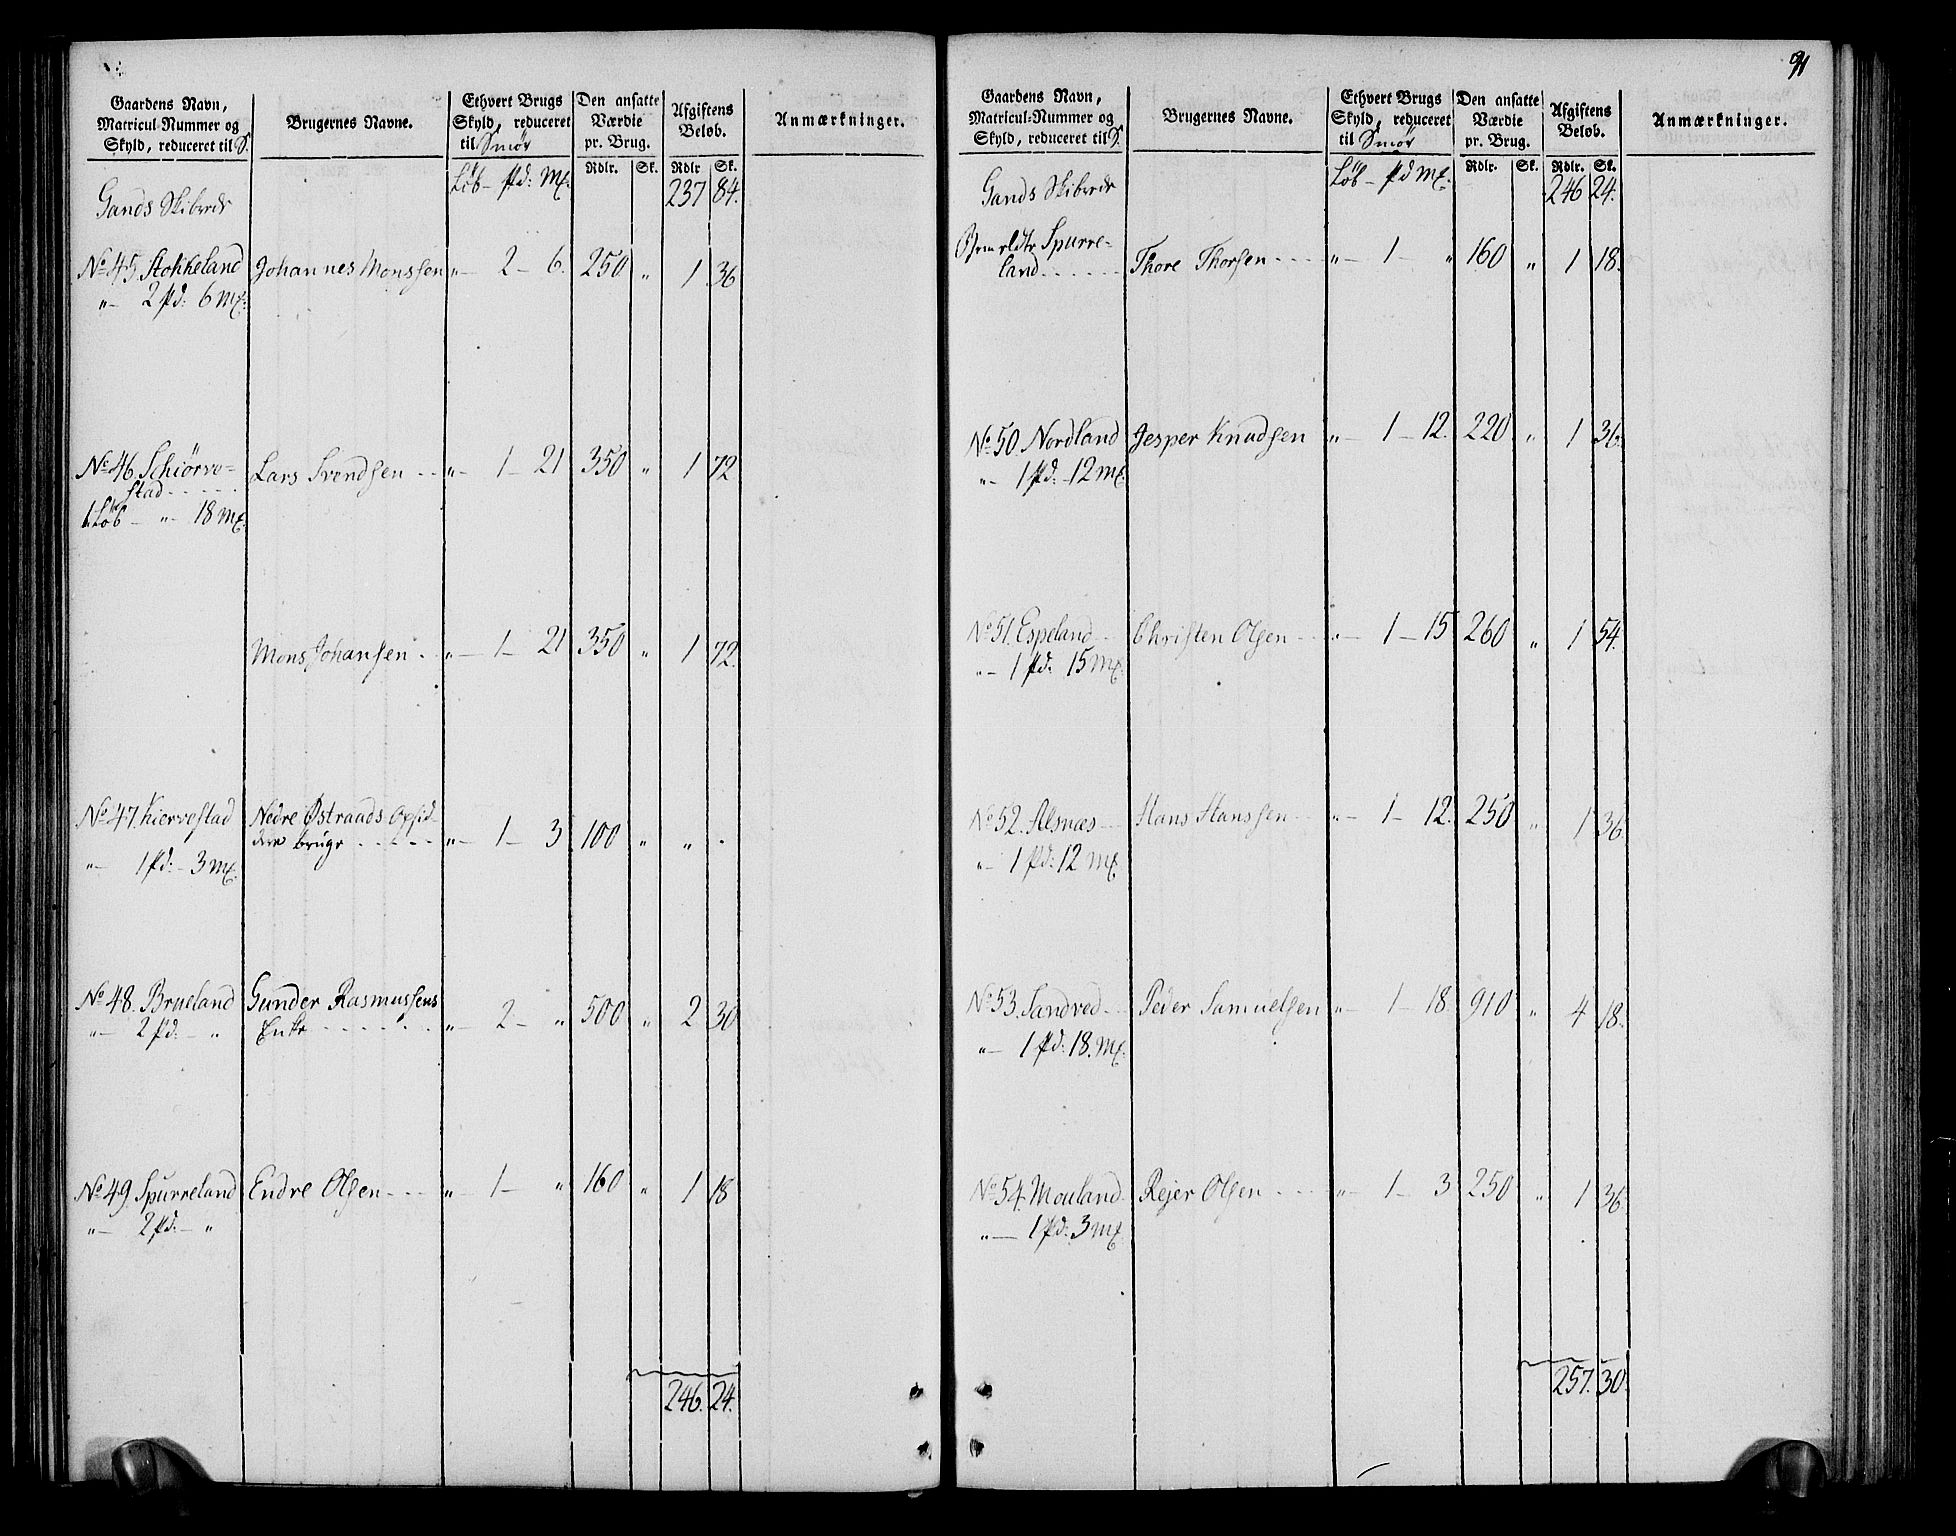 Gaardens Navn,
Matricul-Nummer og
Skyld, reduceret til S.
Brugernes Navne.
Ethvert Brugs
Skyld, reduceret
til Smör
Den ansatte
Værdie
pr. Brug.
Afgiftens
Beløb.
Anmærkninger.
Löb - pd: mk. Rdlr. Sk. Rdlr Sk.
Gands Skibrede 237 84.
No 45. Stokkeland Johannes Monssen „ - 2 - 6. 250 „ 1 36
„ - 2 pd: 6 mk.
No 46. Schiörve- Lars Svendsen - - „ - 1 - 21 350 „ 1 72
stad - - - - -
1 Löb - „ - 18 mk.
Mons Johansen - - „ - 1 - 21 350 „ 1 72.
No 47. Kiervestad Nedre Østraads Opsid-
dere bruge - - - - „ - 1 - 3 100 „ „ .
„ - 1 pd: - 3 mk.
No 48. Brueland Gunder Rasmussens
„ - 2 pd: - „ Enke - - - - - - „ - 2 - „ 500 „ 2 30
No 49. Spurreland Endre Olsen - - - „ - 1 - „ 160 „ 1 18
„ - 2 pd: - „
246. 24.
91
Gaardens Navn,
Matricul-Nummer og
Skyld, reduceret til S.
Brugernes Navne.
Ethvert Brugs
Skyld, reduceret
til Smör
Den ansatte
Værdie
pr. Brug.
Afgiftens
Beløb.
Anmærkninger.
Löb - pd mk. Rdlr. Sk. Rdlr. Sk.
Gands Skibrede 246 24.
Spurre-
land - - - - - Thore Thorsen - - - „ - 1 - „ 160 „ 1 18.
No 50 Nordland Jesper Knudsen „ - 1 - 12. 220 „ 1 36.
„ - 1 pd: - 12 mk.
No 51. Espeland - - Christen Olsen - - „ - 1 - 15 260 „ 1 54.
„ - 1 pd: 15 mk.
No 52. Alsnæs - - Hans Hanssen - - „ - 1 - 12. 250 „ 1 36.
„ - 1 pd: 12 mk.
No 53. Sandved - - Peder Samuelsen „ - 1 - 18. 910 „ 4 18.
„ - 1 pd: 18. mk.
No 54. Mouland. Rejer Olsen - - - „ - 1 - 3 250 „ 1 36.
„ - 1 pd: 3 mk.
257. 30.